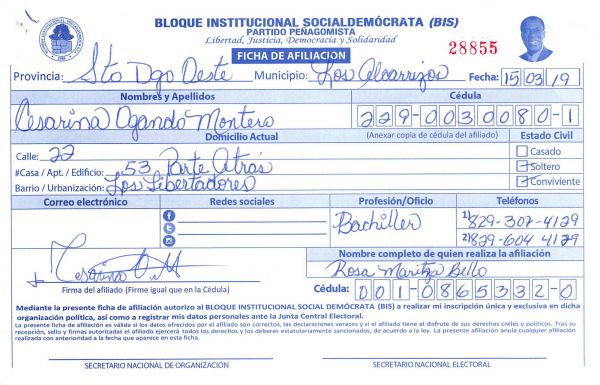 BLOQUE INSTITUCIONAL SOCIALDEMÓCRATA (BIS)
PARTIDO PEÑAGOMISTA
Libertad, Justicia, Democracia y Solidaridad
FICHA DE AFILIACIÓN
28855
Provincia: Sto Dgo Oeste Municipio: Los Alcarrizos Fecha: 15 03 19
Nombres y Apellidos Cédula
Cesarina Ogando Montero 229-0030080-1
Domicilio Actual (Anexar copia de cédula del afiliado) Estado Civil
Calle: 22 Casado
#Casa / Apt. / Edificio: 53 Parte Atrás Soltero
Barrio / Urbanización: Los Libertadores Conviviente
Correo electrónico Redes sociales Profesión/Oficio Teléfonos
Bachiller 1) 829-307-4129
2) 829-604 4129
Nombre completo de quien realiza la afiliación
Rosa Maritza Bello
Firma del afiliado (Firme igual que en la Cédula) Cédula: 001-0865332-0
Mediante la presente ficha de afiliación autorizo al BLOQUE INSTITUCIONAL SOCIAL DEMÓCRATA (BIS) a realizar mi inscripción única y exclusiva en dicha
organización política, así como a registrar mis datos personales ante la Junta Central Electoral.
La presente ficha de afiliación es válida si los datos ofrecidos por el afiliado son correctos, las declaraciones veraces y si el afiliado tiene el disfrute de sus derechos civiles y políticos. Tras su
recepción, sello y firmas autorizadas el afiliado ejercerá todos los derechos y los deberes estatutariamente sancionados, de acuerdo a la ley. La presente afiliación anula cualquier afiliación
realizada con anterioridad a la fecha que aparece en esta ficha.
SECRETARIO NACIONAL DE ORGANIZACIÓN SECRETARIO NACIONAL ELECTORAL